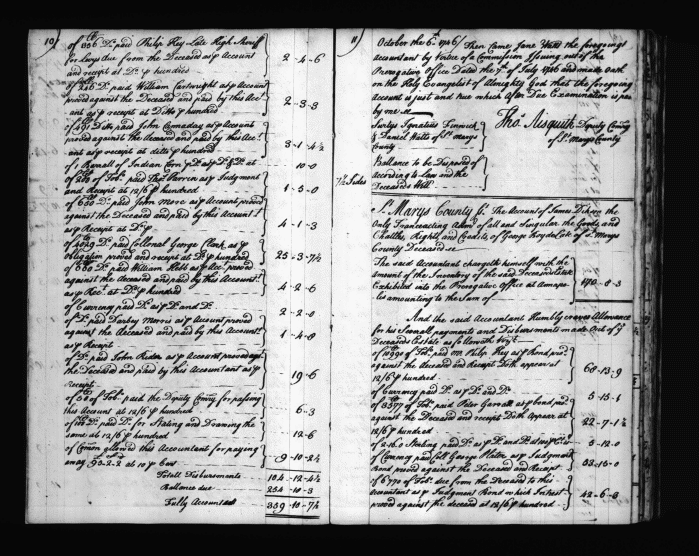 10
of 356 Do. paid Philip Key Late High Sheriff
for Levys due from the Deceased as p Account
and receipt at Do. p hundred
2-4-6
of 246 Do. paid William Cartwright as p Account
proved against the Deceased and paid by this Ac-
ant as p receipt at Ditto p hundred
2-3-3
of 491 Ditto paid John as p Account
proved against the deceased and paid by this Acct.
ant as p receipt at ditto p hundred
3-1-4½
of 1 Barrell of Indian Corn p Do. as p Do. & Do. at
10-0
of 200 of Tobo. paid as p Judgment
and Receipt at 12/6 p hundred
1-5-0
of 650 Do. paid John More as p Account proved
against the Deceased and paid by this Account
as p Receipt at Do. p
4-1-3
of 4049 Do. paid Collonel George Clark as p
obligation proved and receipt at Do. p hundred
25-3-7½
of 660 Do. paid William as p Acct. proved
against the deceased and paid by this Accountt.
as p Rect. at Do. p hundred
4-2-6
of Currency paid Do. as p Do. and Do.
2-2-0
of Do. paid Darby Morris as p Account
proved against the deceased and paid by this Accountt.
as p Receipt
1-4-0
of Do. paid John Rider as p Account proved agt.
the Deceased and paid by this accountant as p
Receipt
19-6
of 50 of Tobo. paid the Deputy Comry for passing
this Account at 12/6 p hundred
6-3
of 100 Do. paid Do. for Stating and Drawing the
same at 12/6 p hundred
12-6
of Comon allowed this Accountant for paying
away 92-2-2 at 10 p Cent
9-10-2½
Totall Disbursments 104-12-4½
Ballance due 234-18-3
Fully Accounted 339-10-7½
11
October the 6th. 1746 Then came Jane the foregoing
Accountant by Vertue of a Commission Issuing out of the
Prerogative Office Dated the 7th. of July 1746 and made oath
on the Holy Evangelist of Almighty God that the foregoing
Account is just and true which after Due Examination is pas
by me
Suretys Ignatius Fenwick
& Daniel Watts of St. Marys
County
Thos. Aisquith Deputy Comry
of St. Marys County
Ballance to be Disposed of
According to Law and the
Deceaseds Will
7½ Sides
St. Marys County Ss. The Account of James
the only Transacting Admr. of all and Singular the Goods and
Chattles, Rights and Credits, of George late of St. Marys
County Deceased
The said Accountant chargeth himself with the
Amount of the Inventory of the said Deceaseds Estate
Exhibited into the Prerogative Office at Annapo
lis amounting to the Sum of
170-8-3
And the said Accountant Humbly craves Allowance
for his Severall payments and Disbursments made Out of ye
Deceaseds Estate as followeth Vizt.
of 10990 of Tobo. paid Mr. Philip Key as p Bond prov.
against the Deceased and Receipt Doth appear at
12/6 p hundred
68-13-9
of Currency paid Do. as p Do. and Do.
5-15-1
of 3577 of Tobo. paid Peter as p Bond pvd.
against the Deceased and receipt Doth Appear at
12/6 p hundred
22-7-1½
of 2-16-0 Sterling paid Do. as p Do. and
5-12-0
of Currency paid Coll. George Plater as p Judgment
Bond proved against the Deceased and Receipt
33-15-0
of 6770 of Tobo. due from the Deceased to this
Accountant as p Judgment Bond which Intrest
proved against the deceased at 12/6 p hundred
42-6-3